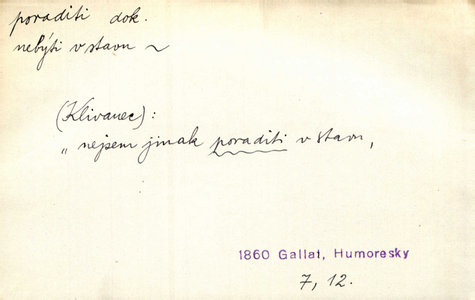 poraditi dok.
nebýti v stavu ~
(Klivanec):
„ nejsem jinak poraditi v stavu,
1860 Gallat, Humoresky
7, 12.